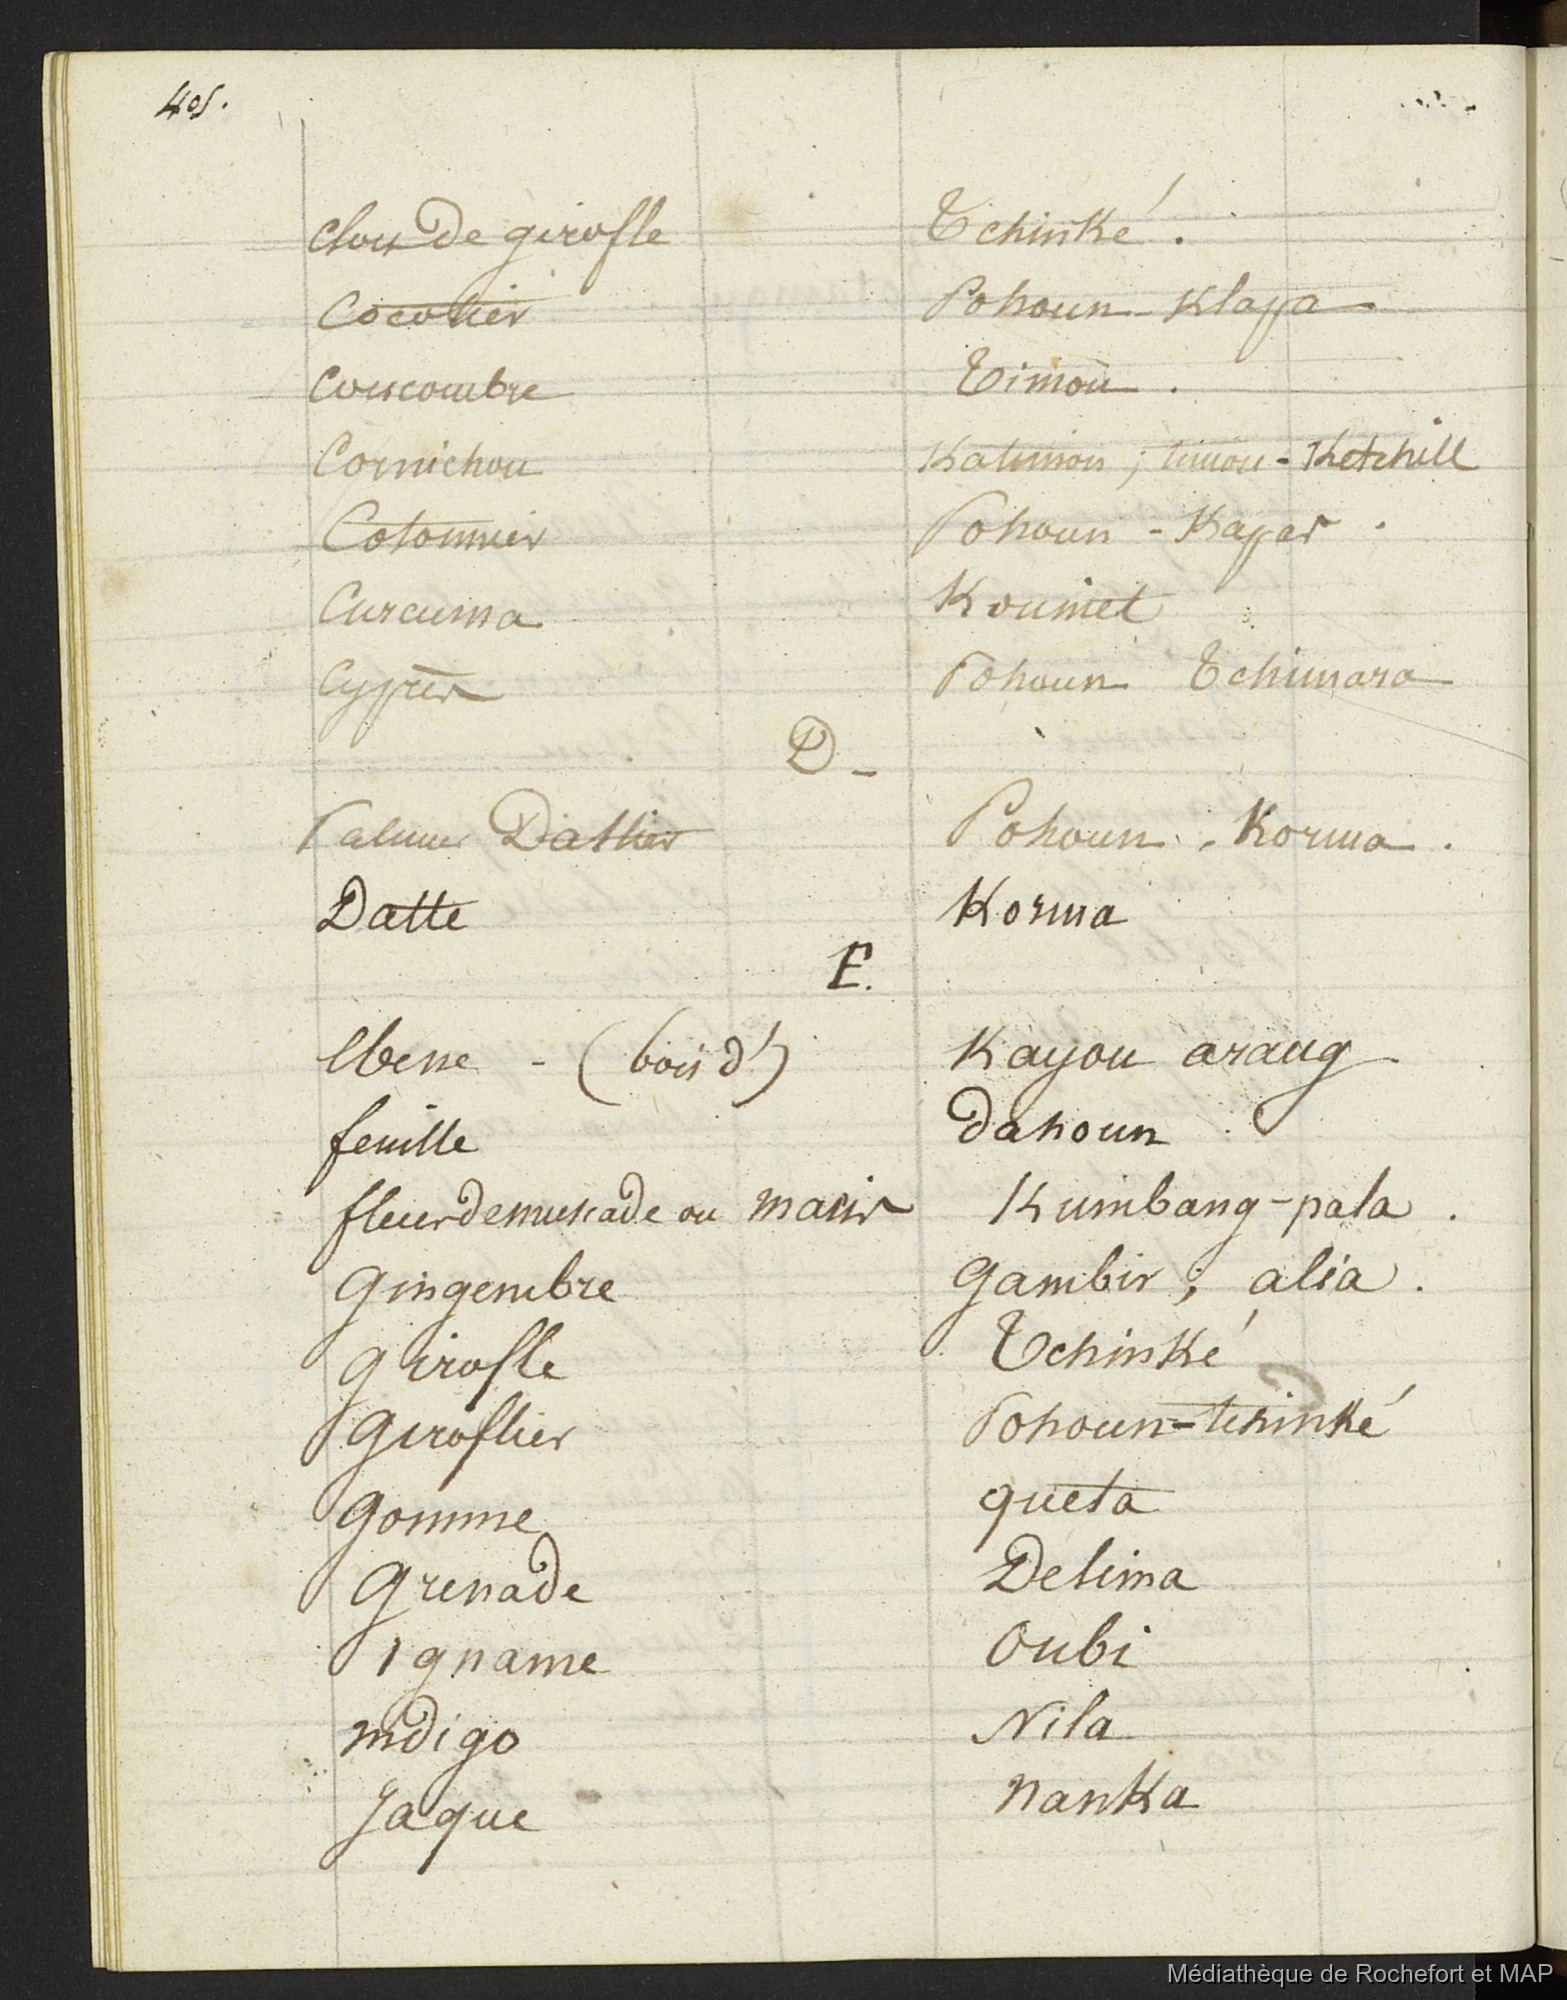 405.
Clous de girofle Tchinké.
Cocotier Pohoun-Klappa
Couscombre Timoù.
Cornichon Katimon; timou-Ketchill
Cotonnier Pohoun-Kapas.
Curcuma Kouniet
Cyprès Pohoun Tchimara
D-
Palmier Dattier Pohoun-Korma.
Datte Korma
E.
ebene - (bois d') Kayou arang
feuille dahoun
fleur de muscade ou macis Kumbang-pala.
Gingembre Gambir; alia.
Girofle Tchinké
Giroflier Pohoun-tchinké
Gomme queta
Grenade Delima
Igname Oubi
Indigo Nila
Jaque Nanka
Médiathèque de Rochefort et MAP